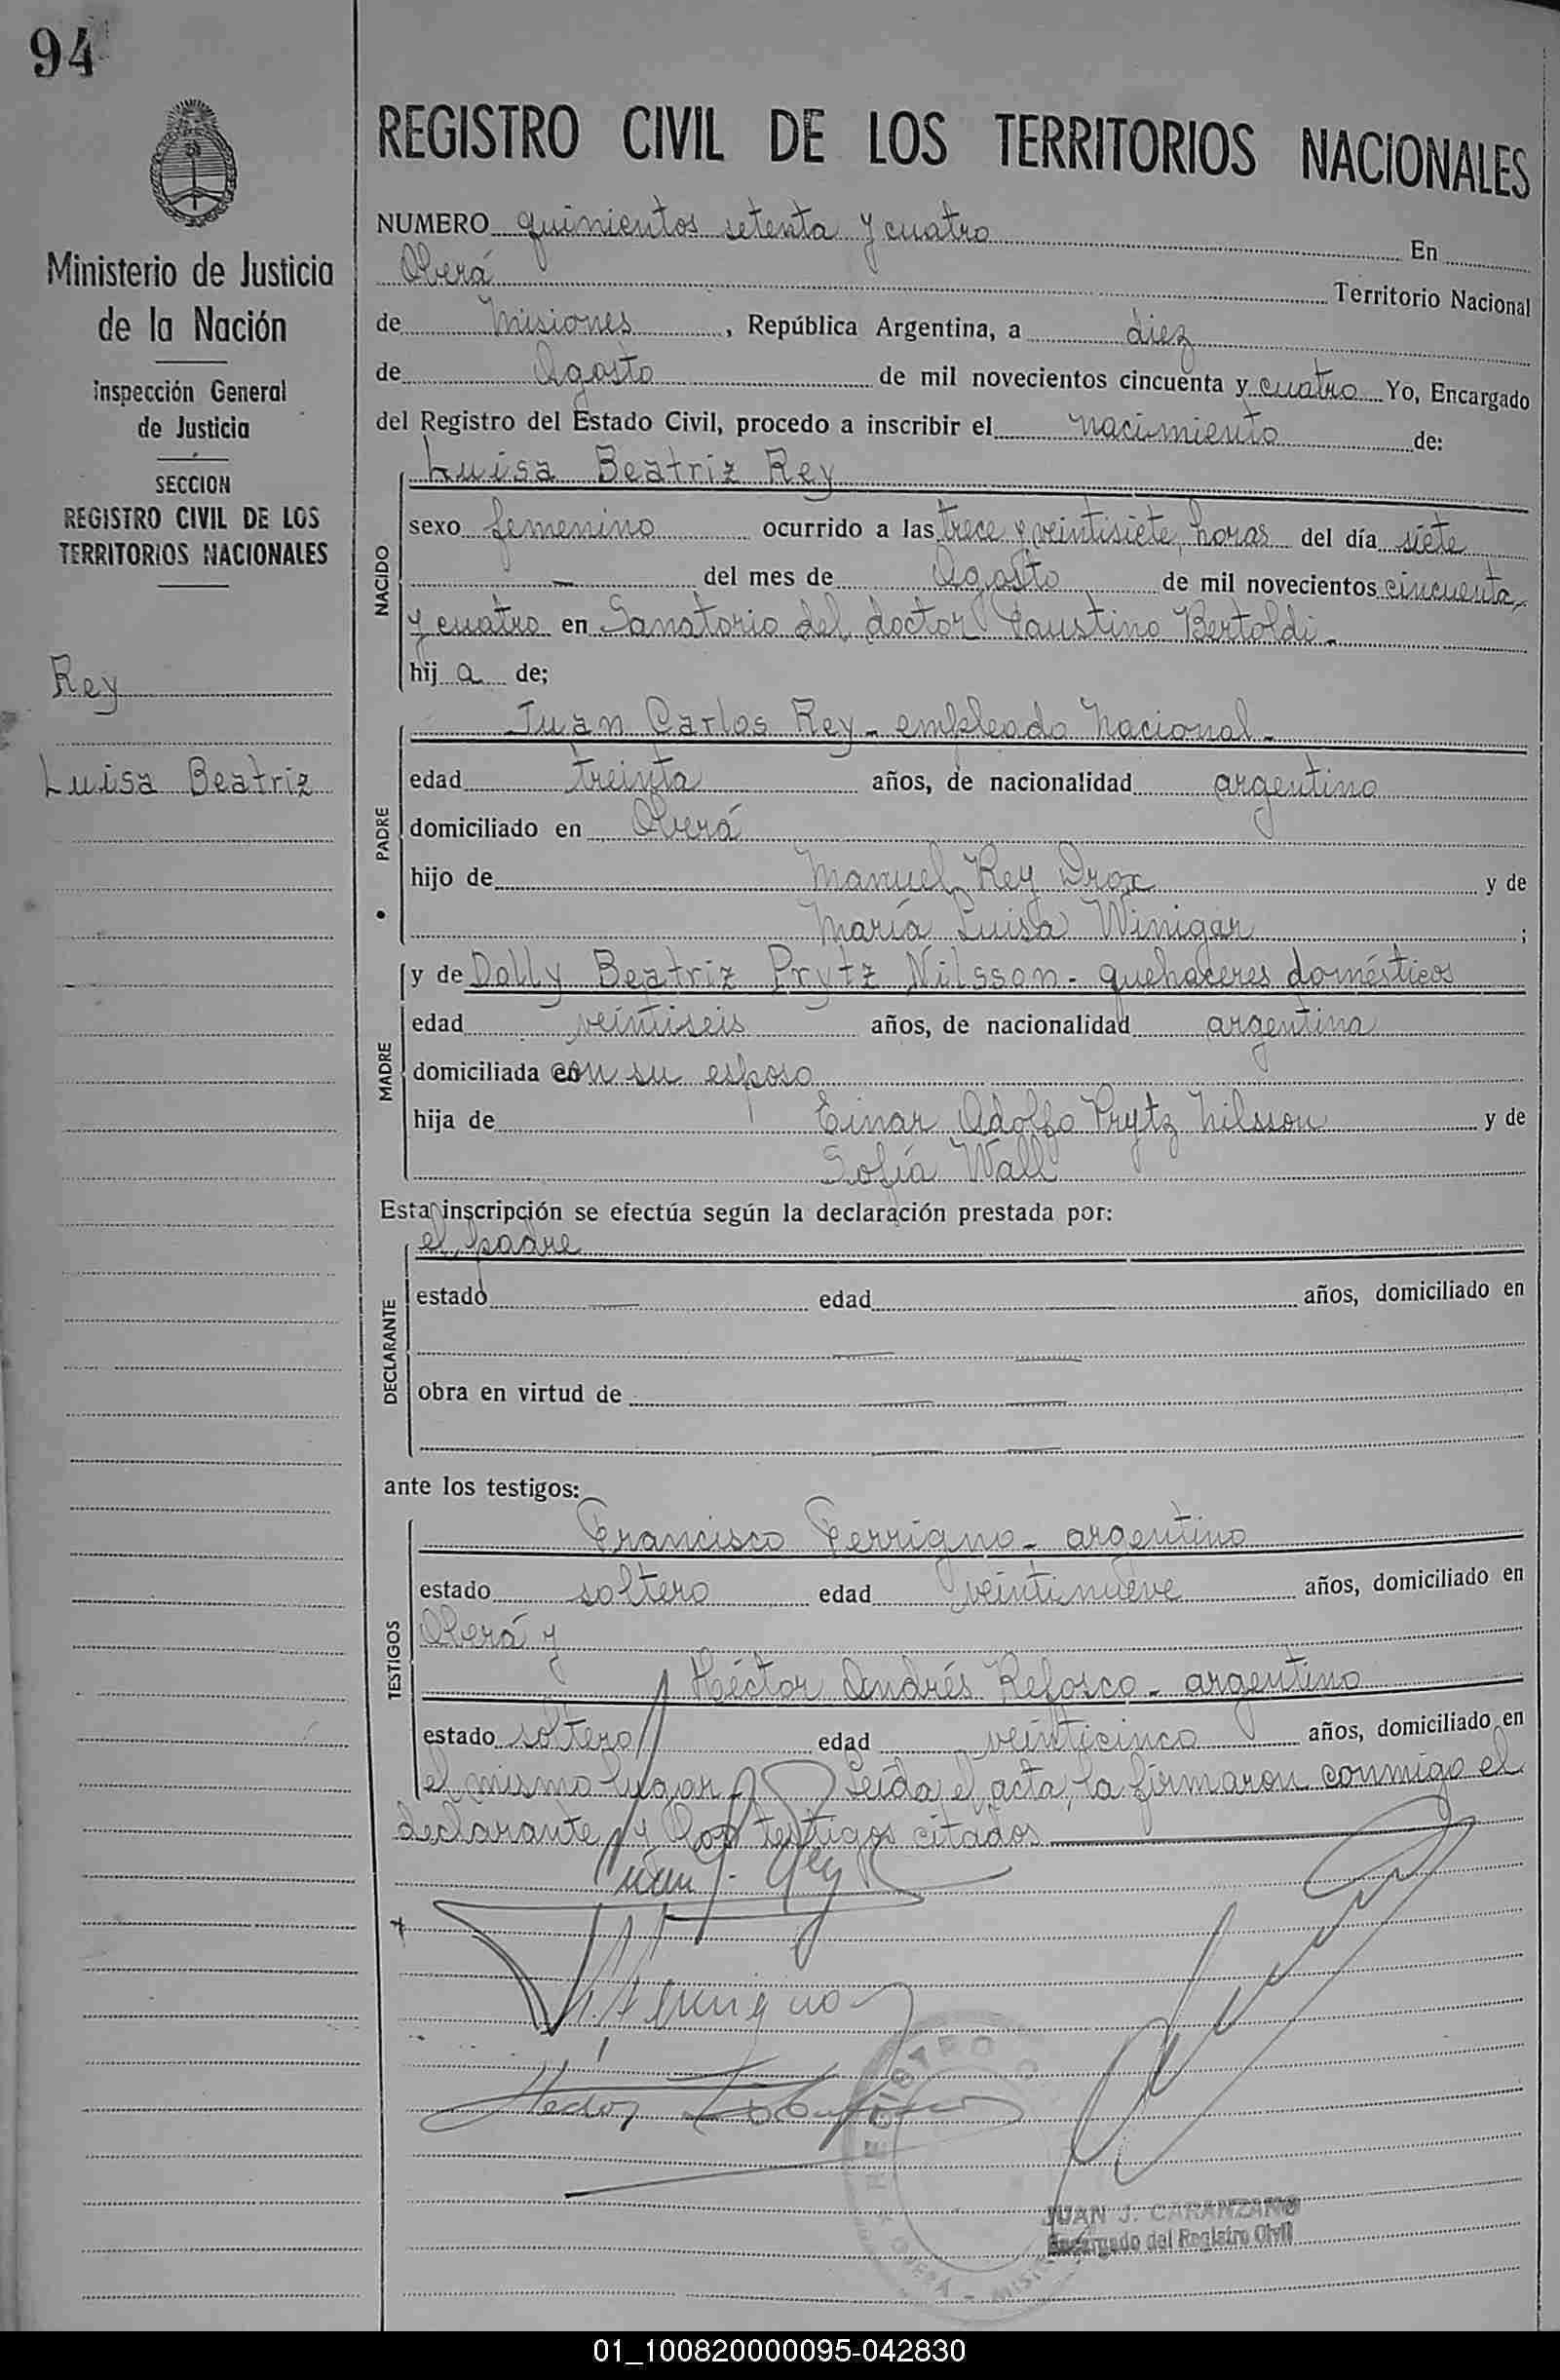 94
Ministerio de Justicia
de la Nación
Inspección General
de Justicia
SECCION
REGISTRO CIVIL DE LOS
TERRITORIOS NACIONALES
Rey
Luisa Beatriz
REGISTRO CIVIL DE LOS TERRITORIOS NACIONALES
NUMERO quinientos setenta y cuatro En
Oberá Territorio Nacional
de Misiones, República Argentina, a diez
de Agosto de mil novecientos cincuenta y cuatro Yo, Encargado
del Registro del Estado Civil, procedo a inscribir el nacimiento de:
NACIDO
Luisa Beatriz Rey
sexo femenino ocurrido a las trece y veintisiete, horas del día siete
— del mes de Agosto de mil novecientos cincuenta
y cuatro en Sanatorio del doctor Faustino Bertoldi-
hij a de;
PADRE
Juan Carlos Rey - empleado Nacional-
edad treinta años, de nacionalidad argentino
domiciliado en Oberá
hijo de Manuel Rey Drox y de
María Luisa Winigar ;
MADRE
y de Dolly Beatriz Prytz Nilsson - quehaceres domésticos
edad veintiseis años, de nacionalidad argentina
domiciliada con su esposo
hija de Einar Adolfo Prytz Nilsson y de
Sofía Wall
Esta inscripción se efectúa según la declaración prestada por:
DECLARANTE
el padre
estado — edad — años, domiciliado en
— —
obra en virtud de — —
— —
ante los testigos:
TESTIGOS
Francisco Ferrigno - argentino
estado soltero edad veintinueve años, domiciliado en
Oberá y
Héctor Andrés Refosco - argentino
estado soltero edad veinticinco años, domiciliado en
el mismo lugar. Leída el acta, la firmaron conmigo el
declarante y los testigos citados
REGISTRO
OBERÁ - MISIONES
JUAN J. CARANZANO
Encargado del Registro Civil
01_100820000095-042830